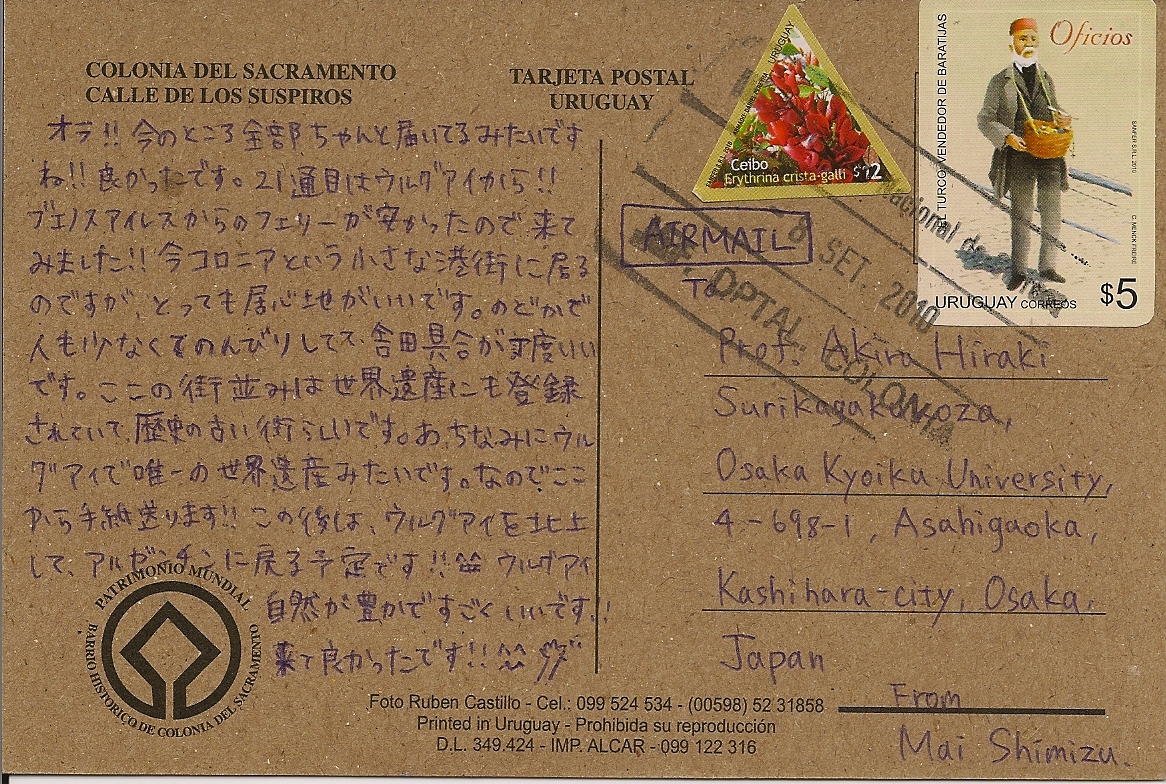 COLONIA DEL SACRAMENTO
CALLE DE LOS SUSPIROS
TARJETA POSTAL
URUGUAY
オラ!! 今のところ全部ちゃんと届いてるみたいです
ね!! 良かったです。21通目はウルグアイから!!
ブエノスアイレスからのフェリーが安かったので来て
みました!! 今コロニアという小さな港街に居る
のですが、とっても居心地がいいです。のどかで
人も少なくてのんびりしてて、
具合が丁度いい
です。ここの街並みは世界遺産にも登録
されていて、歴史の古い街らしいです。あ、ちなみにウル
グアイで唯一の世界遺産みたいです。なのでここ
から手紙送ります!! この後は、ウルグアイを北上
して、アルゼンチンに戻る予定です!! ^^ ウルグアイ
自然が豊かですごくいいです!!
来て良かったです!! ^^
PATRIMONIO MUNDIAL
BARRIO HISTORICO DE COLONIA DEL SACRAMENTO
Foto Ruben Castillo - Cel.: 099 524 534 - (00598) 52 31858
Printed in Uruguay - Prohibida su reproducción
D.L. 349.424 - IMP. ALCAR - 099 122 316
URUGUAY
Ceibo
Erythrina crista-galli $12
Oficios
EL TURCO: VENDEDOR DE BARATIJAS
URUGUAY CORREOS $5
8 SET. 2010
DPTAL. COLONIA
AIRMAIL
To
Prof. Akira Hiraki
Surikagakukoza,
Osaka Kyoiku University,
4-698-1, Asahigaoka,
Kashihara-city, Osaka,
Japan
From
Mai Shimizu.